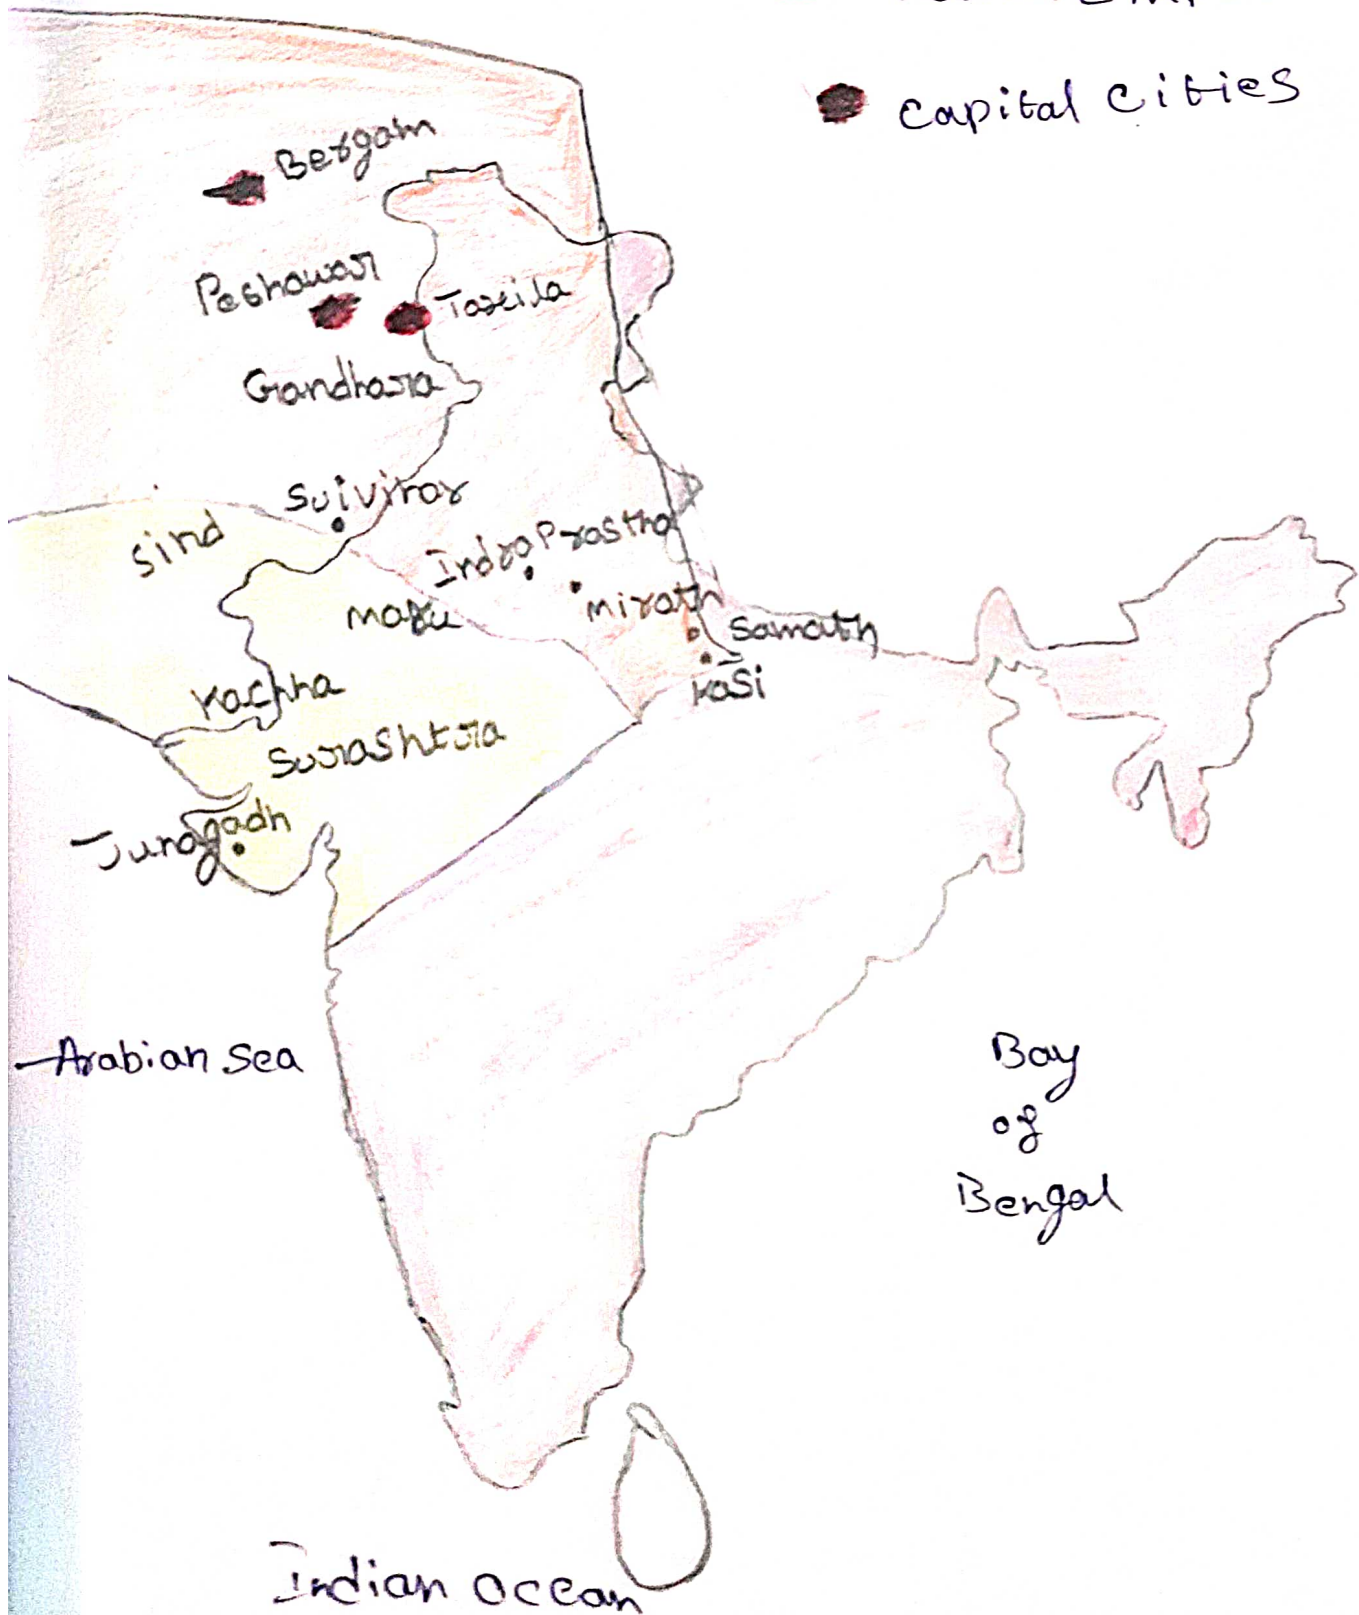 Capital Cities
Bergam
Peshawar
Taxila
Gandhara
Suivihar
Sind
Indraprastha
Maru
Mirath
Sarnath
Kasi
Kachha
Surashtra
Junagadh
Arabian Sea
Bay
of
Bengal
Indian Ocean